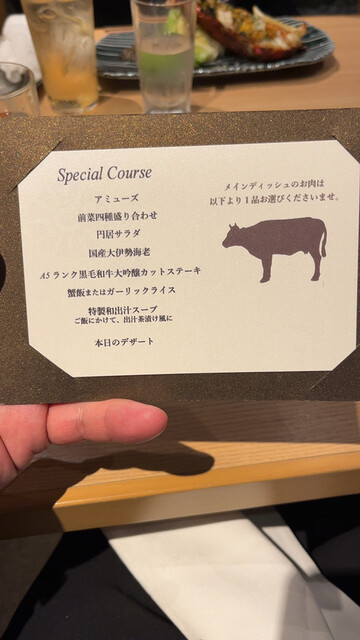 Special Course
アミューズ
前菜四種盛り合わせ
円居サラダ
国産大伊勢海老
A5ランク黒毛和牛大吟醸カットステーキ
蟹飯またはガーリックライス
特製和出汁スープ
ご飯にかけて、出汁茶漬け風に
本日のデザート
メインディッシュのお肉は
以下より1品お選びくださいませ。